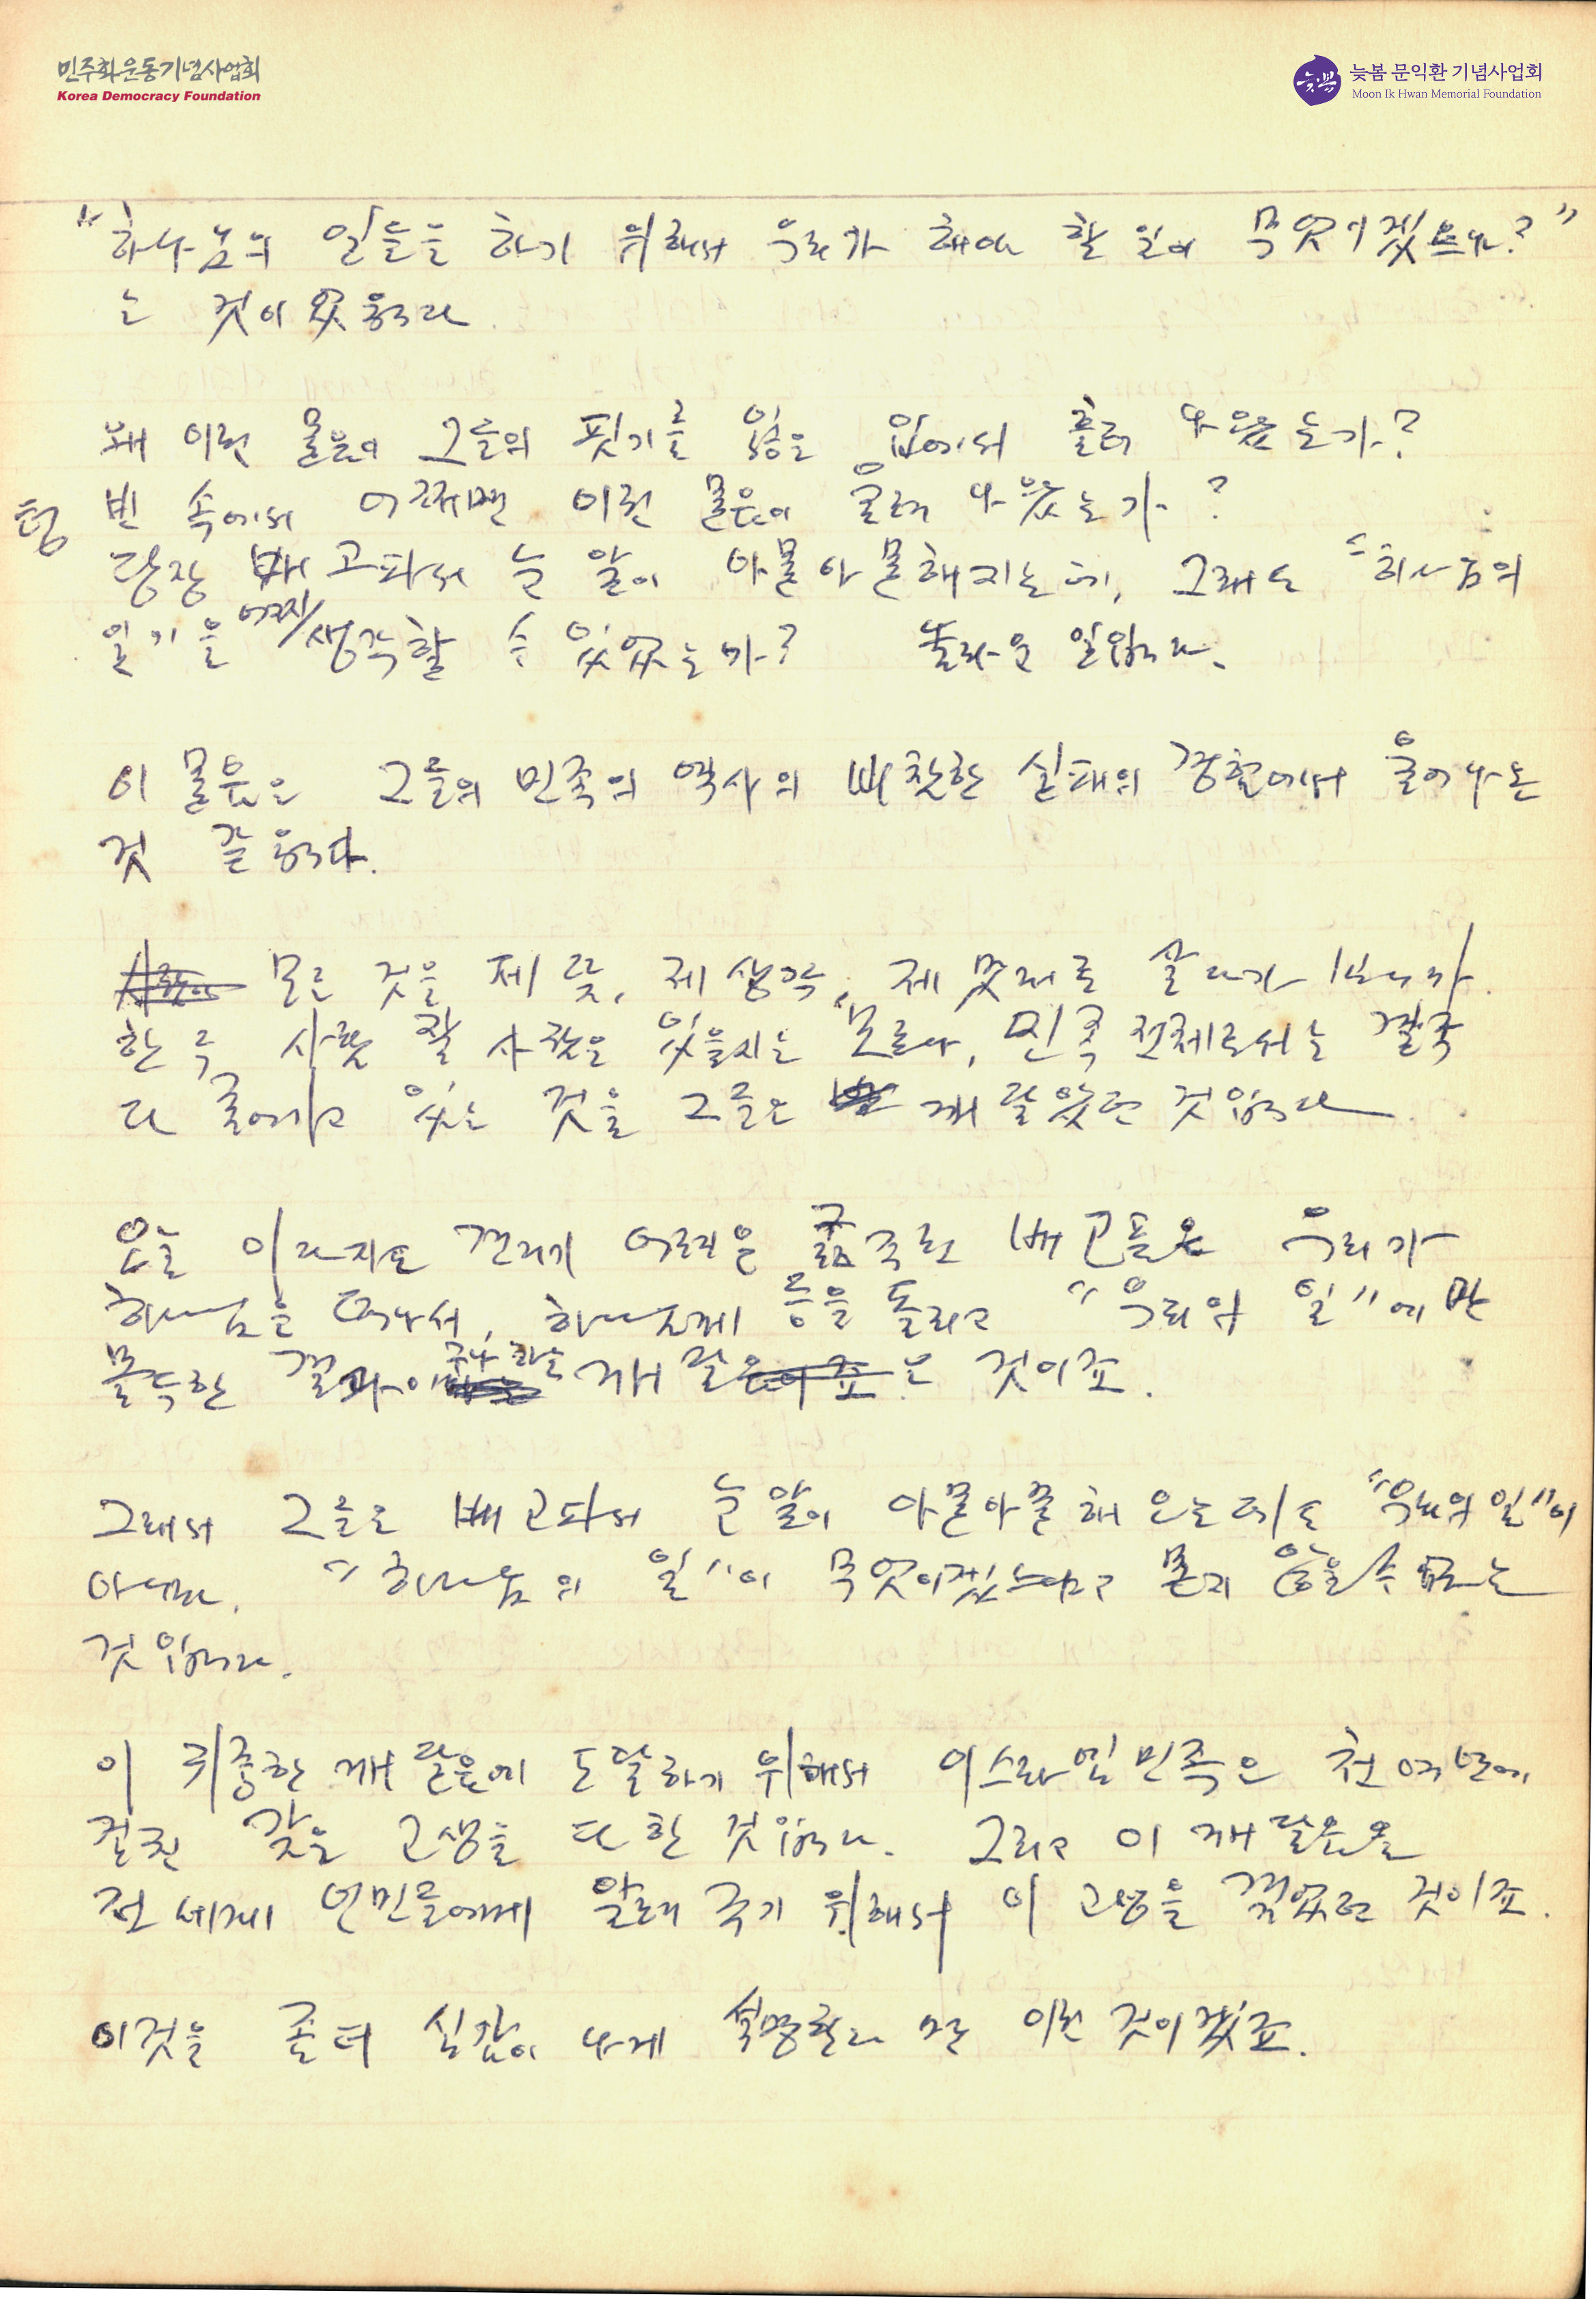 민주화운동기념사업회
Korea Democracy Foundation
늦봄 문익환 기념사업회
Moon Ik Hwan Memorial Foundation
"하나님의 일들을 하기 위해서 우리가 해야 할 일이 무엇이겠으나?"
는 것이 였읍니다.
왜 이런 물음이 그들의 핏기를 잃은 입에서 흘러 나왔는가?
텅 빈 속에서 어쩌면 이런 물음이 울려 나왔는가?
당장 배고파서 눈 앞이 아물아물해지는데, 그래도 "하나님의
일"기을 어찌 생각할 수 있었는가? 놀라운 일입니다.
이 물음은 그들의 민족의 역사의 비참한 실패의 경험에서 울어나온
것 같읍니다.
모든 것을 제 뜻, 제 생각, 제 멋대로 살다가 보니까
한 두 사람 잘 사람은 있을지는 모르나, 민족 전체로서는 결국
다 굶어가고 있는 것을 그들은 깨달았던 것입니다.
오늘 이다지도 견디기 어려운 굶주린 배고픔은 우리가
하나님을 떠나서, 하나님께 등을 돌리고 "우리의 일"에만
몰두한 결과이구나 하는 깨달은 것이죠.
그래서 그들은 배고파서 눈 앞이 아물아물해 오는데도 "우리의 일"이
아니라, "하나님의 일"이 무엇이겠느냐고 묻지 않을 수 없는
것입니다.
이 귀중한 깨달음에 도달하기 위해서 이스라엘 민족은 천여년에
걸친 갖은 고생을 다 한 것입니다. 그리고 이 깨달음을
전 세계 인민들에게 알려 주기 위해서 이 고생을 겪었던 것이죠.
이것을 좀 더 실감이 나게 설명한다면 이런 것이겠죠.